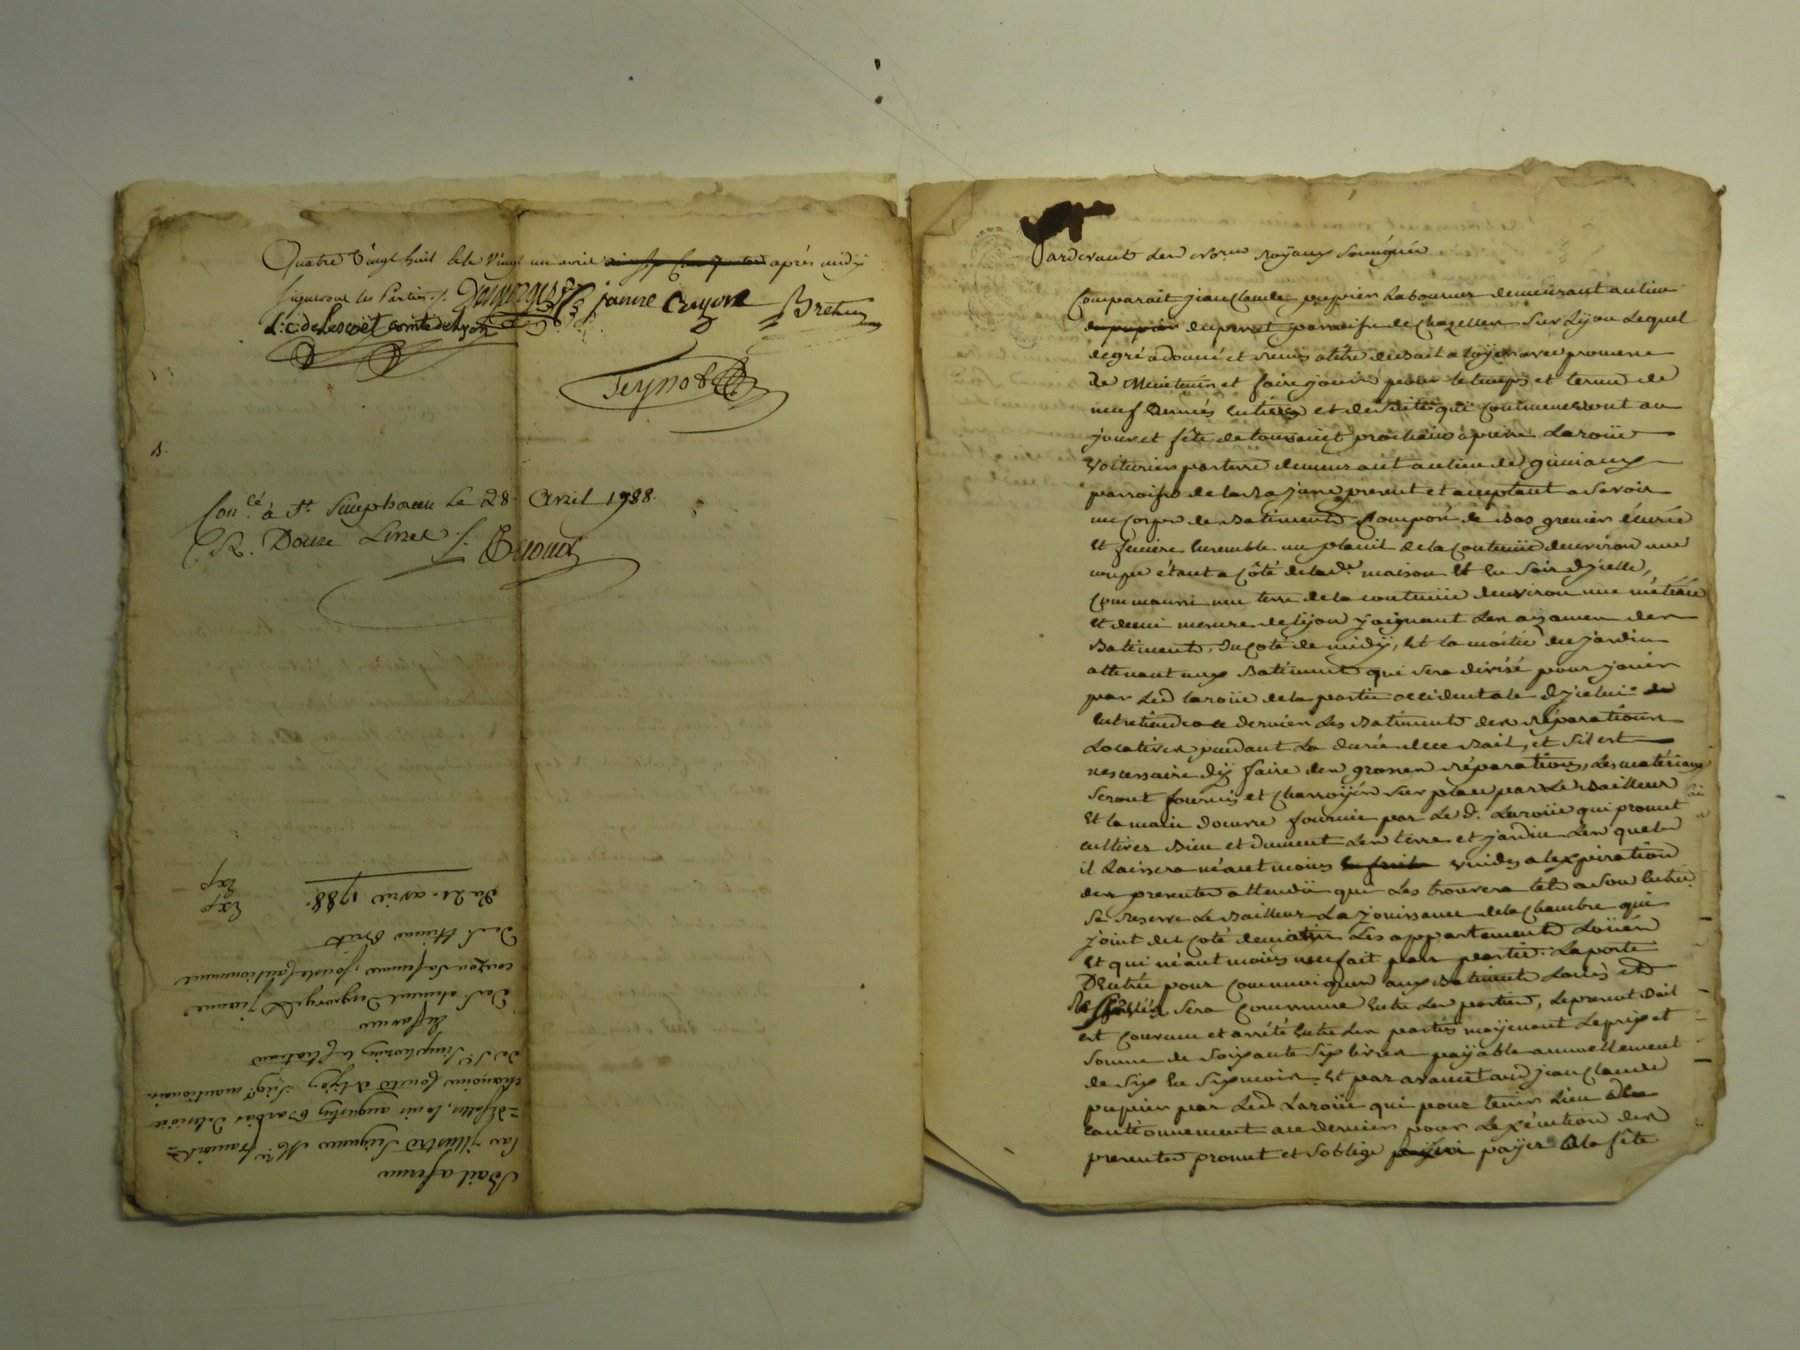 Quatre Vingt huit le Vingt un avril après midy
signeront les Parties ./. Desgorges janne Creyon Bretun
L: C: de Lescoët comte de Lyon
Teynob
Con.lé à St. Simphorien Le 28. Avril 1788.
R. Douze Livres ./.
Bail a ferme
Par illustre Seigneur Mre. françois=
=
chanoine comte de Lyon. Seigr. mansionnaire
de St. Simphorien le Chateau
En faveur
De S. Desgorges & Jeanne
sa femme, sous le cautionnement
De S.
Du 21. avril 1788.
Exp
Exp
Pardevant les No.res Royaux soussignés
Comparait jean Claude pupier Laboureur demeurant au lieu
du peret paroisse de Chazelles Sur Lyon Lequel
de gré a donné et remis a titre de Bail a loyer avec promesse
de Maintenir et faire jouir pour le temps et terme de
neuf années entieres et de suite qui Commenceront au
jour et fête de toussaint prochain a pierre Laroüe
Voiturier par terre demeurant au lieu de
parroisse de la Rajasse present et acceptant a Savoir
un Corps de Batiments Composé de Bas grenier écurie
et feniere Ensemble un plassil de la Contenüe d'environ une
coupe étant a Côté de la d.e maison et en Soir d'jcelle,
Comme aussi une terre de la contenüe d'environ une métérée
et demi mesure de Lyon joignant les aizances des
Batiments, du Coté de midy, Et la moitié du jardin
attenant aux Batiments qui sera divisé pour jouir
par Led Laroüe de la partie occidentale d'jcelui
Entretiendra ce dernier Les Batiments des réparations
Locatives pendant La durée du Bail, et s'il est
nescessaire d'y faire des grosses réparations, Les matériaux
Seront fournis et Charroyés sur place par Le Bailleur
Et la main d'œuvre fournie par Le d. Laroüe qui promet
cultiver Bien et dument Les terre et jardin Les quels
il Laissera néantmoins vuides a l'expiration
des presentes attendü qu'il Les trouvera tels a son Entrée.
Se Reserve Le Bailleur La jouissance de la Chambre qui
joint du Coté de matin Les appartements Loüés
Et qui néantmoins n'en fait pas partie. La porte
D'Entrée pour Communiquer aux Batiments Loués et
Réservés sera Commune Entre Les parties, Le present Bail
est Convenu et arrêté Entre Les parties moyenant Le prix et
somme de Soixante Six livres payable annuellement
de six En six mois. Et par avance aud jean Claude
pupier par Led. Laroüe qui pour tenir Lieu de
Cautionnement a ce dernier pour L'exécution des
presentes promet et s'oblige payer a la fête